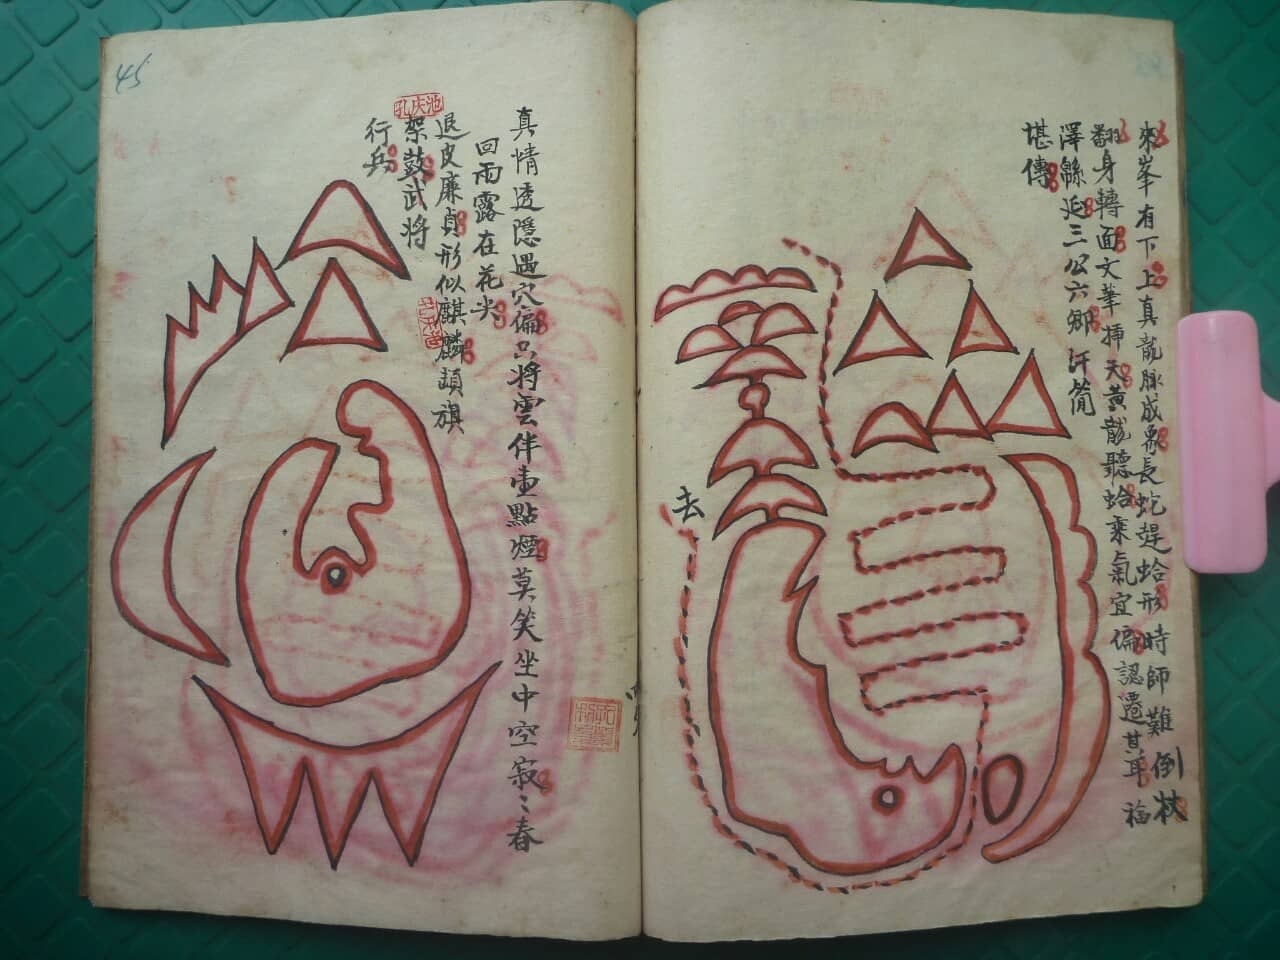 來峯有下上真龍脉成象長蛇趕蛤形時師難倒杖
翻身轉面文華揷天黃龍聽蛤乘氣宜偏認遷其耳福
澤緜延三公六卿汗簡
堪傳
去
真情透隱遇穴偏只將雲伴壷點煙莫笑坐中空寂〻春
回雨露在花尖
退皮廉貞形似麒麟頓旗
架鼓武将
行兵
池庆孔
45